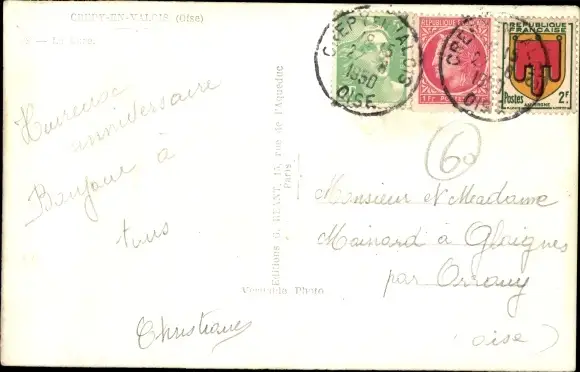 CREPY-EN-VALOIS (Oise)
La Gare.
Heureuse
anniversaire
Bonjour à
tous
Christiane
Editions G. REANT, 15, rue de l'Aqueduc
Paris
Véritable Photo
CREPY-EN-VALOIS
1950
OISE
REPUBLIQUE FRANÇAISE
CREPY
1950
OISE
REPUBLIQUE
FRANÇAISE
Postes
2F
AUVERGNE
60
Monsieur et Meadame
Mainard à Glaignes
par Orrouy
(oise)